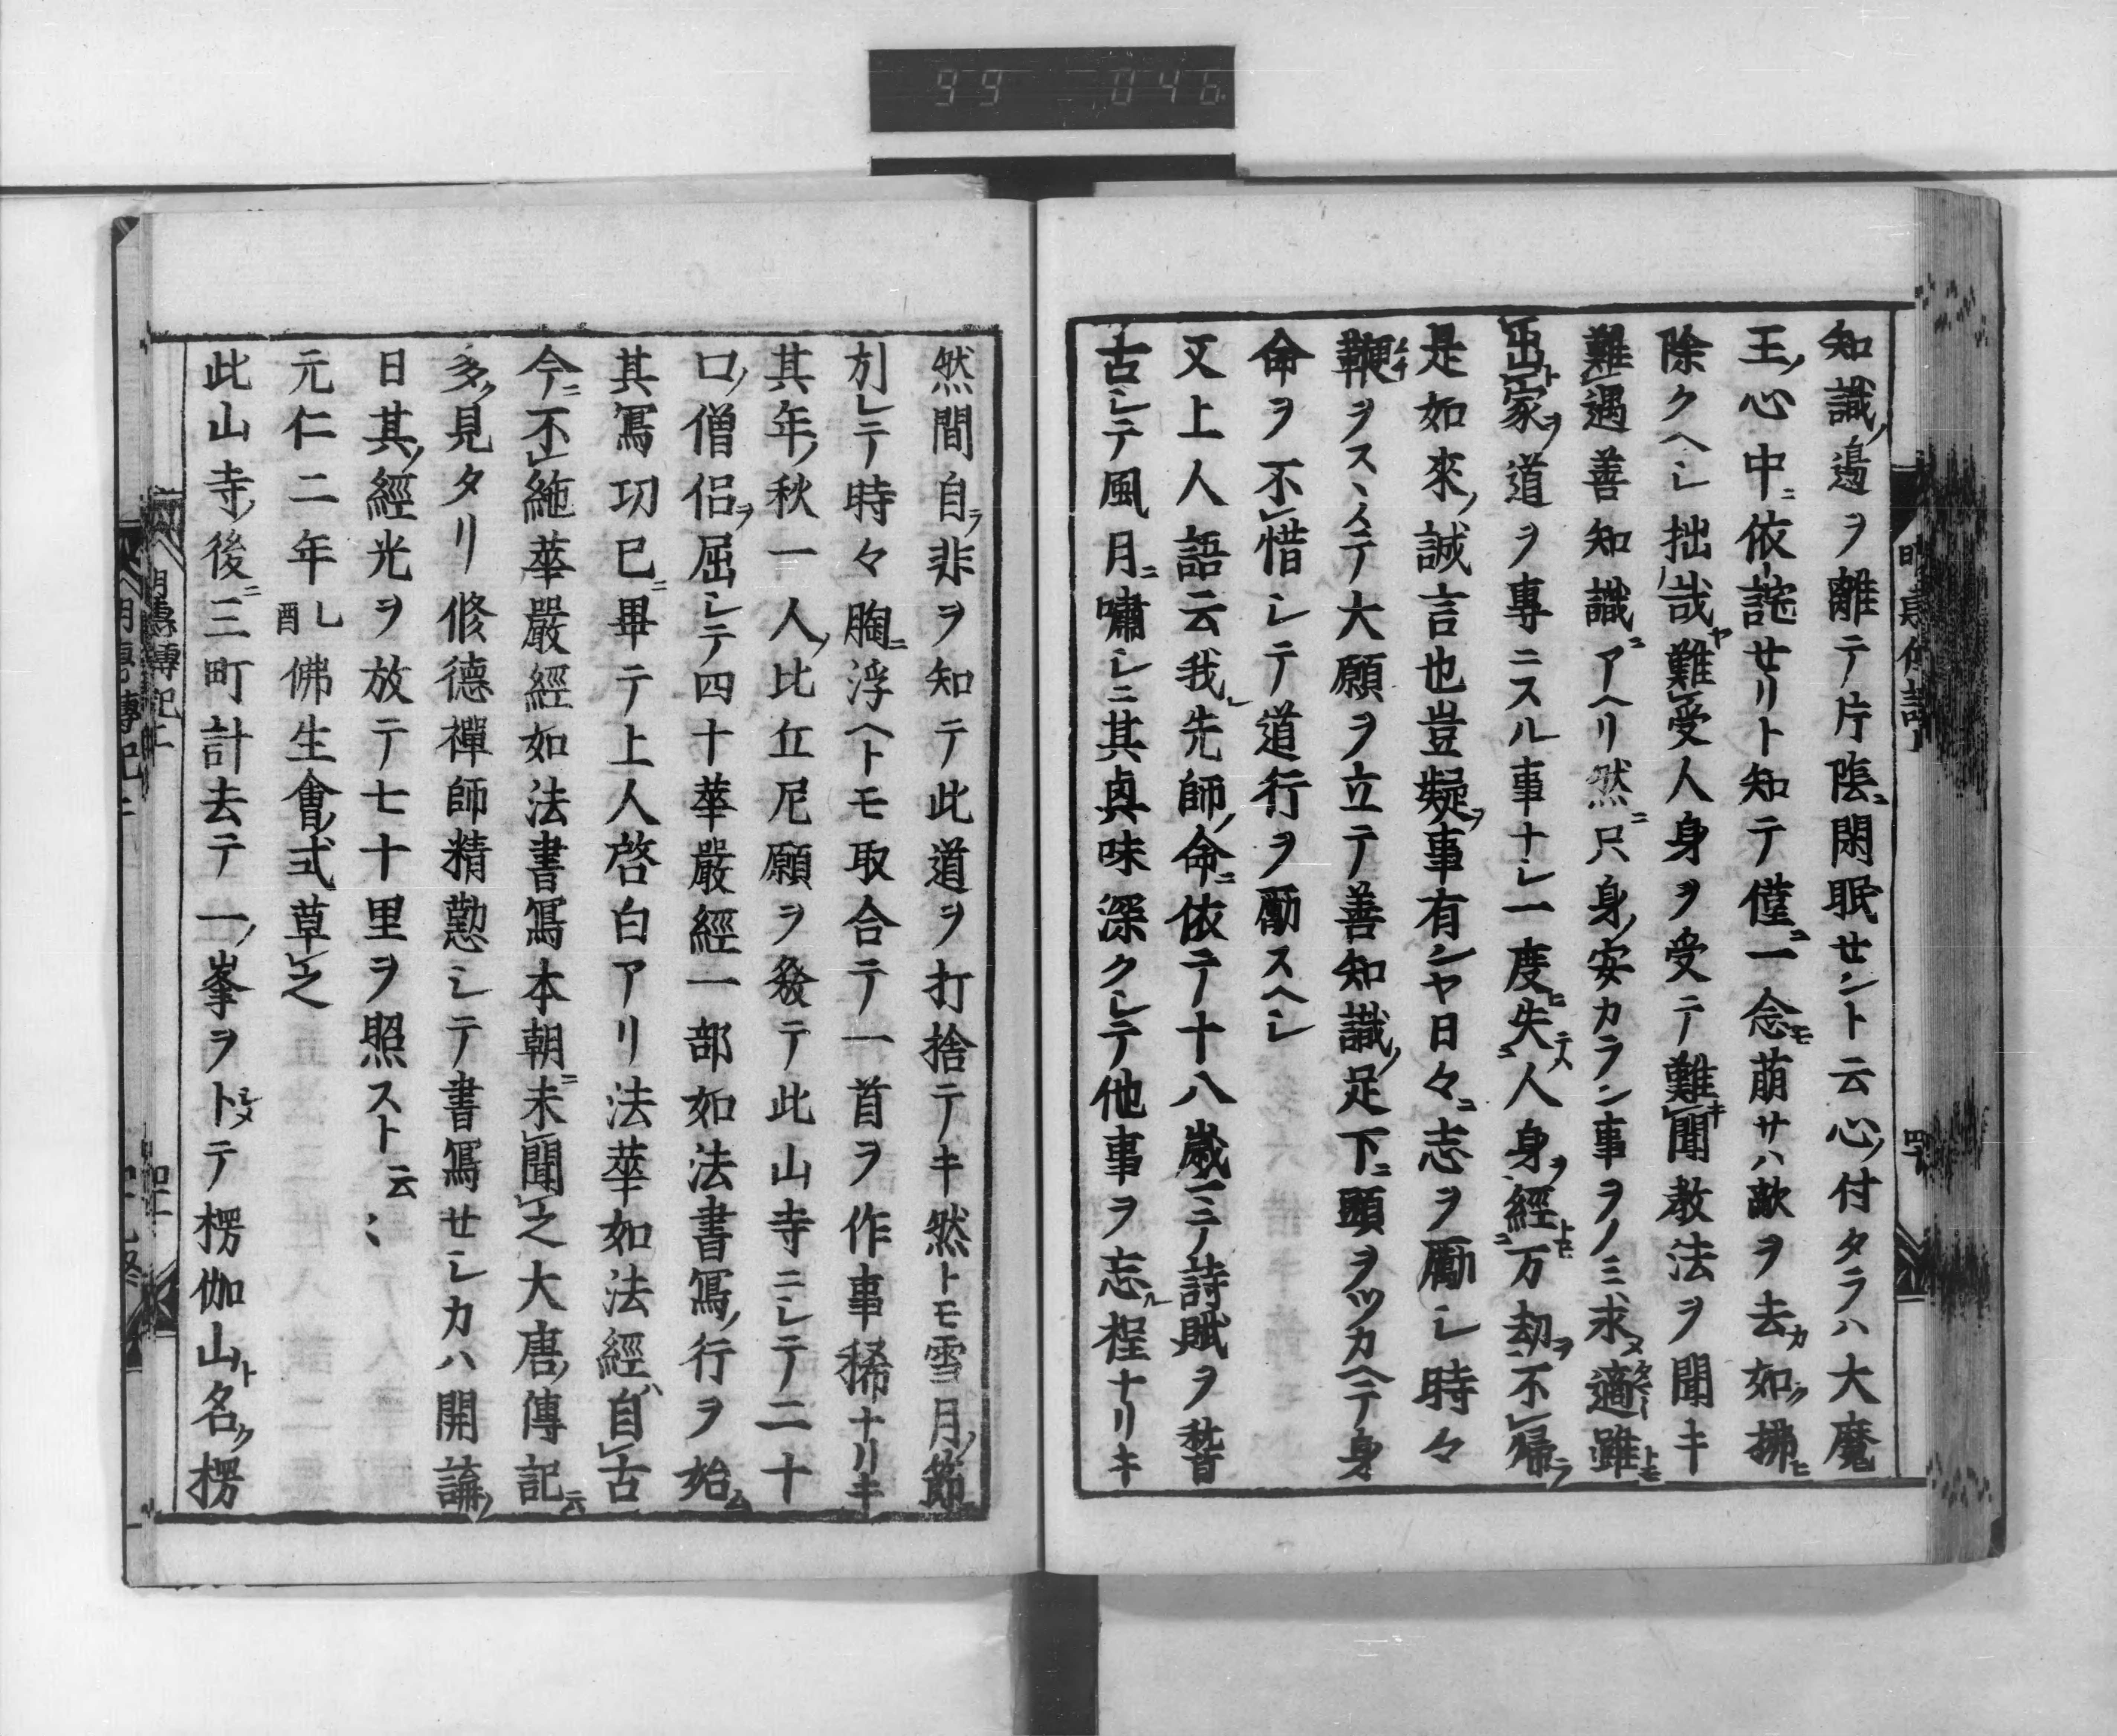 99 046
知識ノ邊ヲ離テ片陰ニ閑眠せシト云心ノ付タラハ大魔
王ノ心中ニ依詫せリト知テ僅ニ一念モ萠サハ敵ヲ去カ如ク拂ヒ
除クヘし拙哉ヤ難受人身ヲ受テ難キ聞教法ヲ聞キ
難遇善知識ニアヘリ然ニ只身ノ安カラン事ヲノミ求ヌ適雖トモ
出家ト道ヲ專ニスル事ナし一度ヒ失人身ヲ經万劫ヲ不歸ラ
是如來ノ誠言也豈疑フ事有シヤ日々ニ志ヲ勵し時々
鞭ムチヲスヽメテ大願ヲ立テ善知識ノ足下ニ頭ヲツカヘテ身
命ヲ不惜しテ道行ヲ勵スヘし
又上人語云我レ先師ノ命ニ依テ十八歳ニテ詩賦ヲ稽
古しテ風月ニ嘯しニ其眞味深クしテ他事ヲ志ル程ナリキ
然間自ラ非ヲ知テ此道ヲ打捨テキ然トモ雪月ノ節
刋しテ時々胸ニ浮ヘトモ取合テ一首ヲ作事稀ナリキ
其年ノ秋一人ノ比丘尼願ヲ發テ此山寺ニしテ二十
口ノ僧侶ヲ屈しテ四十華嚴經一部如法書寫ノ行ヲ始ム
其寫功已ニ畢テ上人啓白アリ法華如法經ハ自古
今ニ不絶華嚴經如法書寫本朝ニ未聞之大唐ノ傳記云
多ノ見タリ修德禪師精懃シテ書寫せしカハ開講ノ
日其ノ經光ヲ放テ七十里ヲ照スト云〻
元仁二年乙酉佛生會ノ式草之
此山寺ノ後ニ三町計去テ一ノ峯ヲトシメテ楞伽山ト名ク楞